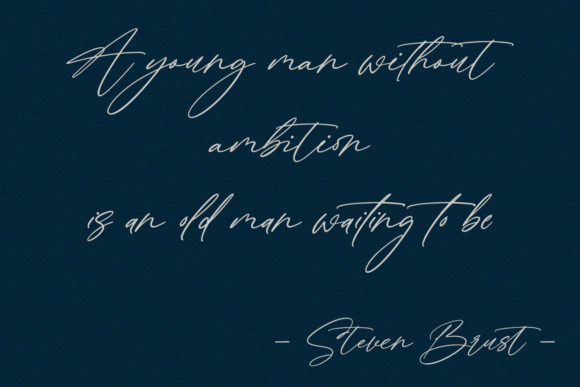 A young man without
ambition
is an old man waiting to be
– Steven Brust –